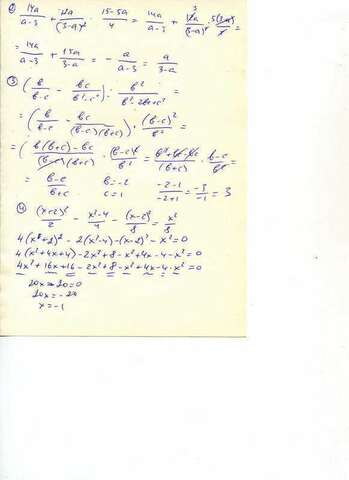 ② 14a/(a-3) + 12a/(3-a)² · (15-5a)/4 = 14a/(a-3) + 12a/(3-a)² · 5(3-a)/4 =
= 14a/(a-3) + 15a/(3-a) = - a/(a-3) = a/(3-a)
③ (в/(в-c) - вc/(в²-c²)) : в²/(в²-2вc+c²) =
= (в/(в-c) - вc/((в-c)(в+c))) · (в-c)²/в² =
= (в(в+c)-вc)/((в-c)(в+c)) · (в-c)²/в² = (в²+вc-вc)/(в+c) · (в-c)/в² =
= (в-c)/(в+c) в=-2 c=1 (-2-1)/(-2+1) = -3/-1 = 3
④ (x+2)²/2 - (x²-4)/4 - (x-2)²/8 = x²/8
4(x+2)² - 2(x²-4) - (x-2)² - x² = 0
4(x²+4x+4) - 2x²+8 - x²+4x-4 - x² = 0
4x²+16x+16 - 2x²+8 - x²+4x-4 - x² = 0
20x+20=0
20x=-20
x=-1